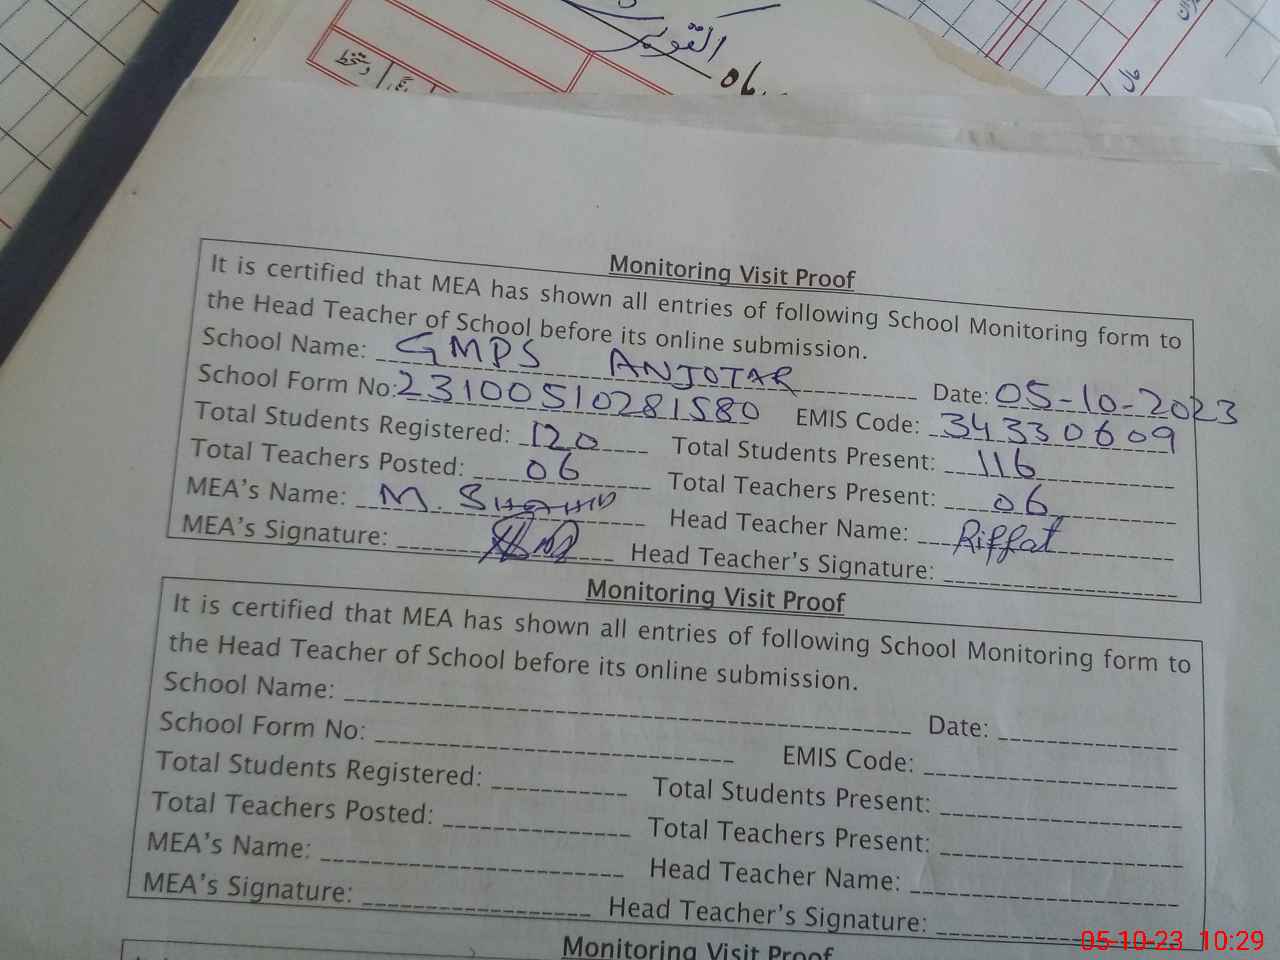 القوس
06.
دستخط
Monitoring Visit Proof
It is certified that MEA has shown all entries of following School Monitoring form to
the Head Teacher of School before its online submission.
School Name: GMPS ANJOTAR Date: 05-10-2023
School Form No: 23100510281580 EMIS Code: 34330609
Total Students Registered: 120 Total Students Present: 116
Total Teachers Posted: 06 Total Teachers Present: 06
MEA's Name: M. SHAHID Head Teacher Name: Riffat
MEA's Signature: Head Teacher's Signature:
Monitoring Visit Proof
It is certified that MEA has shown all entries of following School Monitoring form to
the Head Teacher of School before its online submission.
School Name: Date:
School Form No: EMIS Code:
Total Students Registered: Total Students Present:
Total Teachers Posted: Total Teachers Present:
MEA's Name: Head Teacher Name:
MEA's Signature: Head Teacher's Signature:
Monitoring Visit Proof
05-10-23 10:29